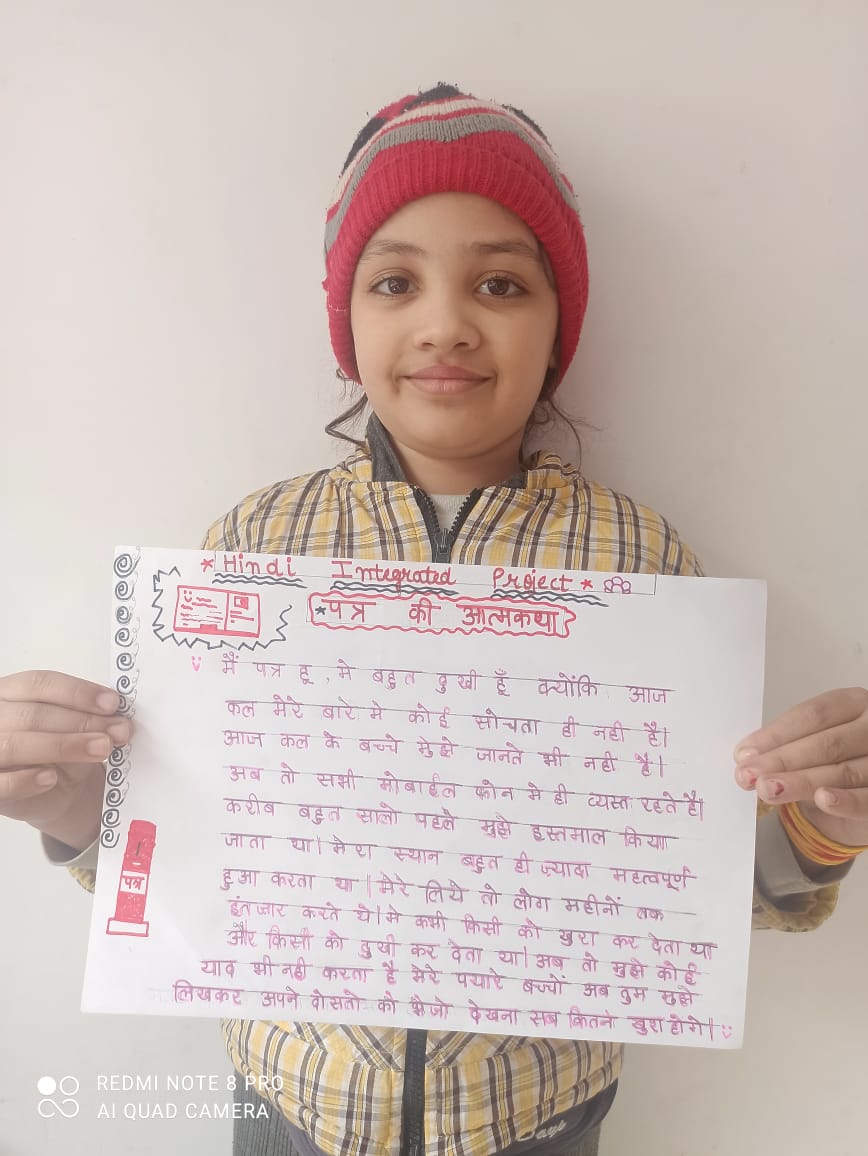 Hindi Integrated Project
पत्र की आत्मकथा
मैं पत्र हू, मे बहुत दुखी हूँ क्योंकि आज
कल मेरे बारे मे कोई सोचता ही नही है।
आज कल के बच्चे मुझे जानते भी नही है।
अब तो सभी मोबाईल फोन मे ही व्यस्त रहते है।
करीब बहुत सालो पहले मुझे इस्तमाल किया
जाता था। मेरा स्थान बहुत ही ज्यादा महत्वपूर्ण
हुआ करता था। मेरे लिये तो लोग महीनों तक
इंतजार करते थे। मे कभी किसी को खुश कर देता था
और किसी को दुखी कर देता था। अब तो मुझे कोई
याद भी नही करता है मेरे पयारे बच्चों अब तुम मुझे
लिखकर अपने दोसतो को भेजो देखना सब कितने खुश होगे।
पत्र
REDMI NOTE 8 PRO
AI QUAD CAMERA